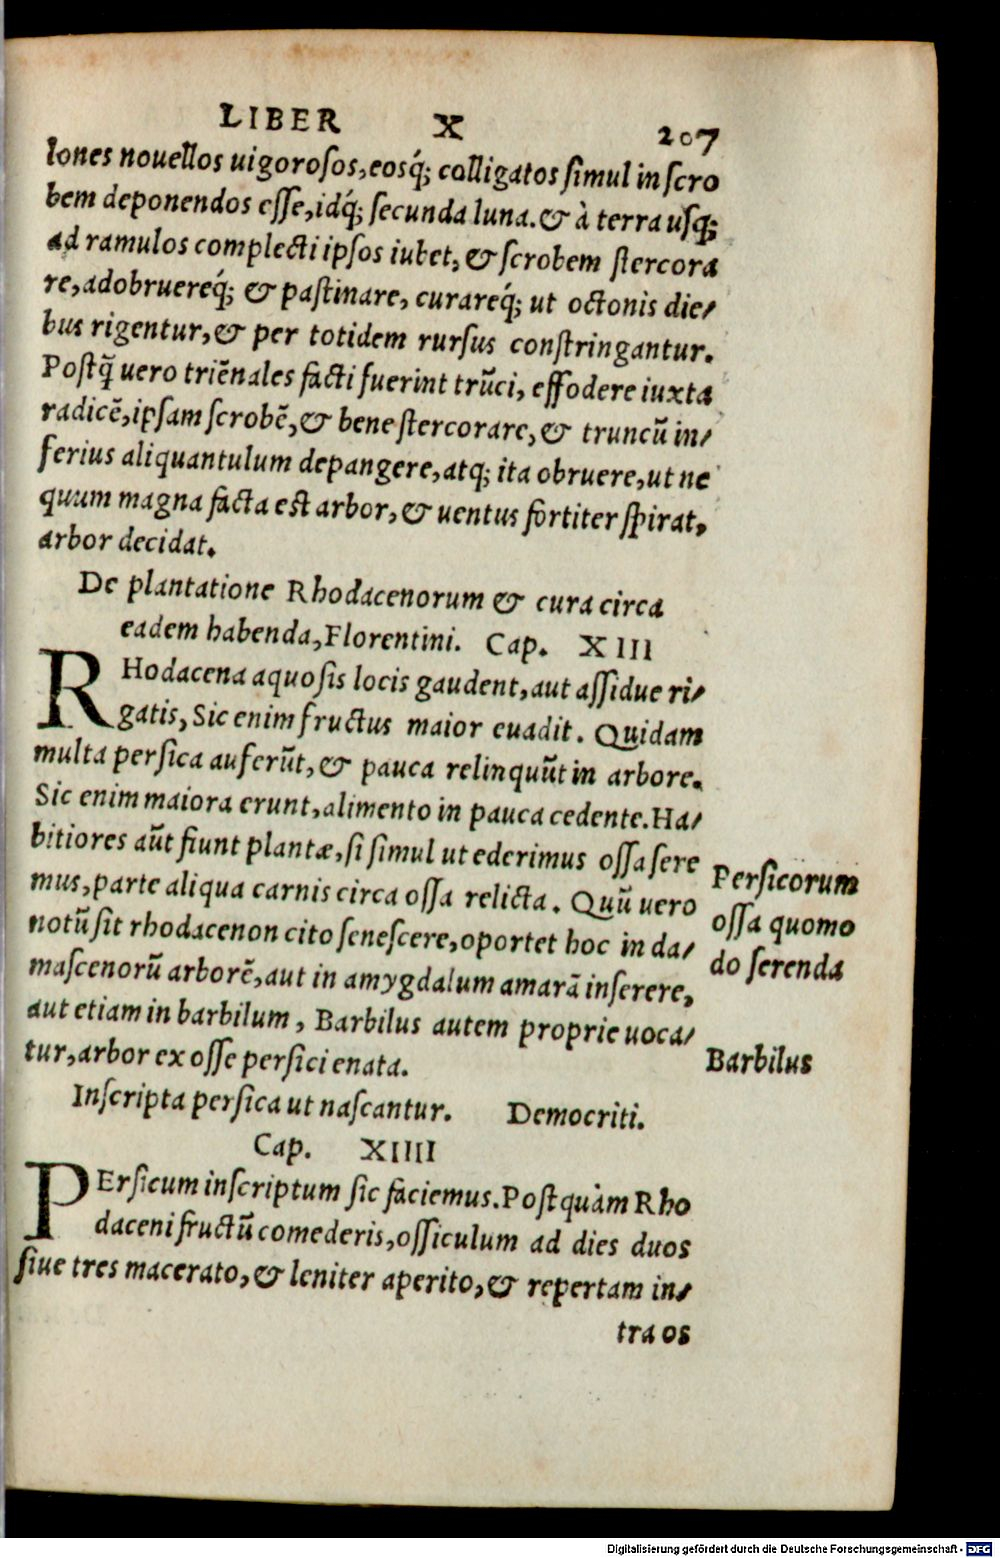 LIBER X 207
lones nouellos uigorosos, eosq́; colligatos simul in scro
bem deponendos esse, idq́; secunda luna. & à terra usq;
ad ramulos complecti ipsos iubet, & scrobem stercora
re, adobruereq́; & pastinare, curareq́; ut octonis die⸗
bus rigentur, & per totidem rursus constringantur.
Postq̃ uero triẽnales facti fuerint trũci, effodere iuxta
radicẽ, ipsam scrobẽ, & bene stercorare, & truncũ in⸗
ferius aliquantulum depangere, atq; ita obruere, ut ne
quum magna facta est arbor, & uentus fortiter spirat,
arbor decidat.
De plantatione Rhodacenorum & cura circa
eadem habenda, Florentini. Cap. XIII
RHodacena aquosis locis gaudent, aut assidue ri⸗
gatis, Sic enim fructus maior euadit. Quidam
multa persica auferũt, & pauca relinquũt in arbore.
Sic enim maiora erunt, alimento in pauca cedente. Ha⸗
bitiores aũt fiunt plantæ, si simul ut ederimus ossa sere
mus, parte aliqua carnis circa ossa relicta. Quũ uero
notũ sit rhodacenon cito senescere, oportet hoc in da⸗
mascenorũ arborẽ, aut in amygdalum amarã inserere,
aut etiam in barbilum, Barbilus autem proprie uoca⸗
tur, arbor ex osse persici enata.
Persicorum
ossa quomo
do serenda
Barbilus
Inscripta persica ut nascantur. Democriti.
Cap. XIIII
PErsicum inscriptum sic faciemus. Postquàm Rho
daceni fructũ comederis, ossiculum ad dies duos
siue tres macerato, & leniter aperito, & repertam in⸗
tra os
Digitalisierung gefördert durch die Deutsche Forschungsgemeinschaft - DFG